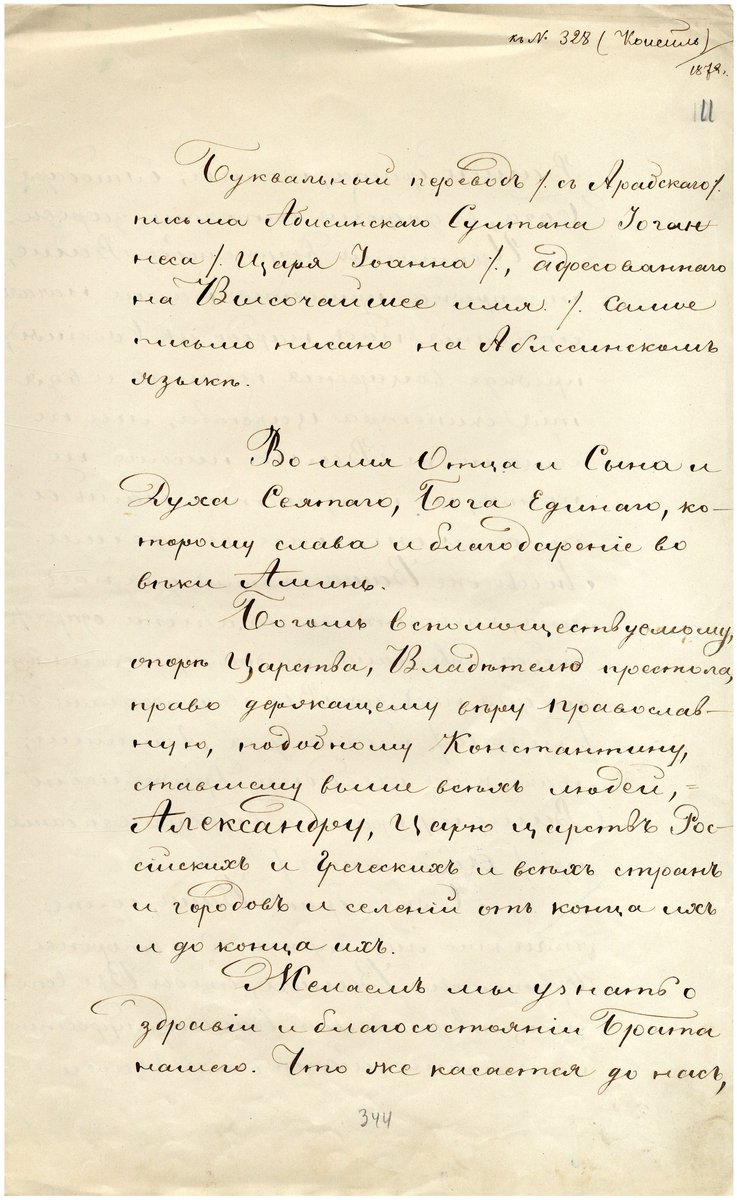 къ № 328 (Консиль)
1872.
11
Буквальный переводъ /. съ Арабскаго /.
письма Абисинскаго Султана Іоган-
неса /. Царя Іоанна /., адресованнаго
на Высочайшее имя. /. Самое
письмо писано на Абиссинскомъ
языкѣ.
Во имя Отца и Сына и
Духа Святаго, Бога Единаго, ко-
торому слава и благодареніе во
вѣки Аминь.
Богомъ вспомоществуемому,
опорѣ Царства, Владѣтелю престола,
право держащему вѣру православ-
ную, подобному Константину,
ставшему выше всѣхъ людей, =
Александру, Царю царствъ Рос-
сійскихъ и Греческихъ и всѣхъ странъ
и городовъ и селеній отъ конца ихъ
и до конца ихъ.
Желаемъ мы узнать о
здравіи и благосостояніи Брата
нашего. Что же касается до насъ,
344